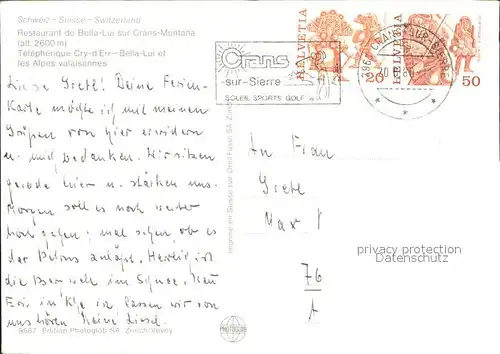 Schweiz - Suisse - Switzerland
Restaurant de Bella-Lui sur Crans-Montana
(alt. 2600 m)
Téléphérique Cry-d'Err-Bella-Lui et
les Alpes valaisannes
HELVETIA
20
HELVETIA
50
Crans
-sur-Sierre
SOLEIL SPORTS GOLF
3963 CRANS-SUR-SIERRE
Liebe Gretl! Deine Ferien-
Karte möchte ich mit meinen
Grüßen von hier erwidern
u. mich bedanken. Wir sitzen
gerade hier u. stärken uns.
Morgen soll es noch weiter
hoch gehen; mal sehen ob es
der zulässt. Herrlich ist
die im Schnee.
in lassen wir von
uns hören. Deine Liesel.
An Frau
Gretl
76
Imprimé en Suisse sur Orell Füssli SA, Zürich
9587 Edition Photoglob SA, Zürich/Vevey
PHOTOGLOB
passend-zum-Thema
PROTECTED COPY